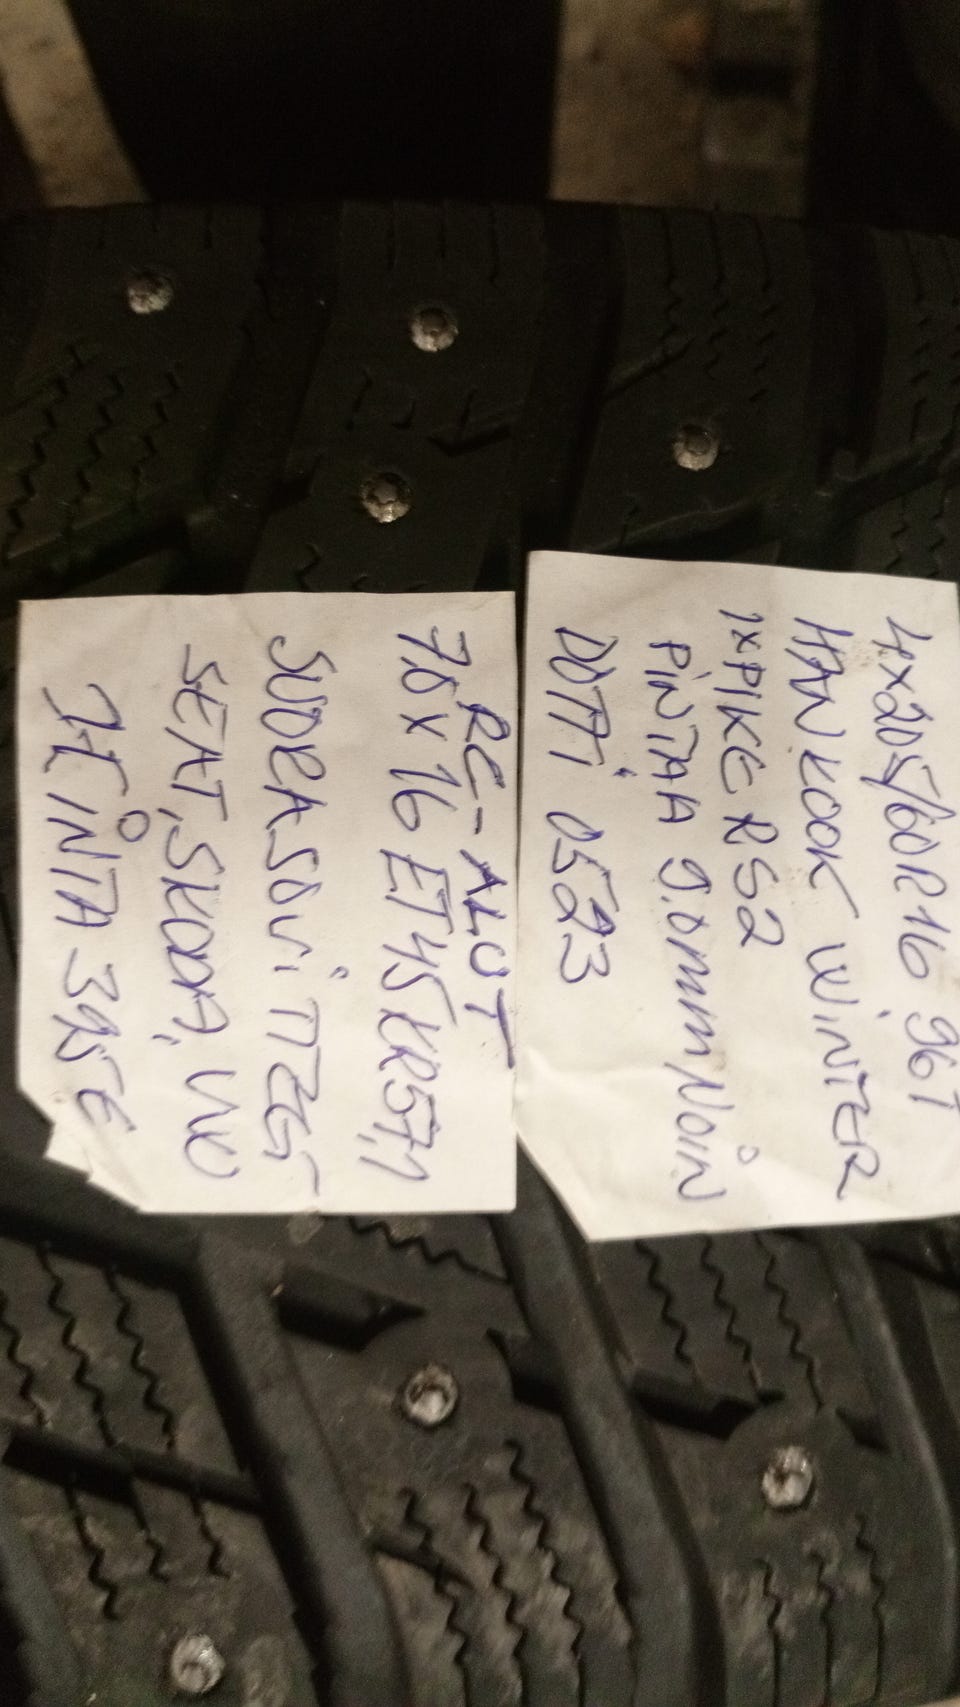 4x205/60R16 96T
HANKOOK WINTER
1xPIKE RS2
PINTAA 9.0mm NOIN
DOTTi 0523
RC-ALUT
7.0x16 ET45 KR57,1
SEAT, SKODA, VW
HINTA 395€